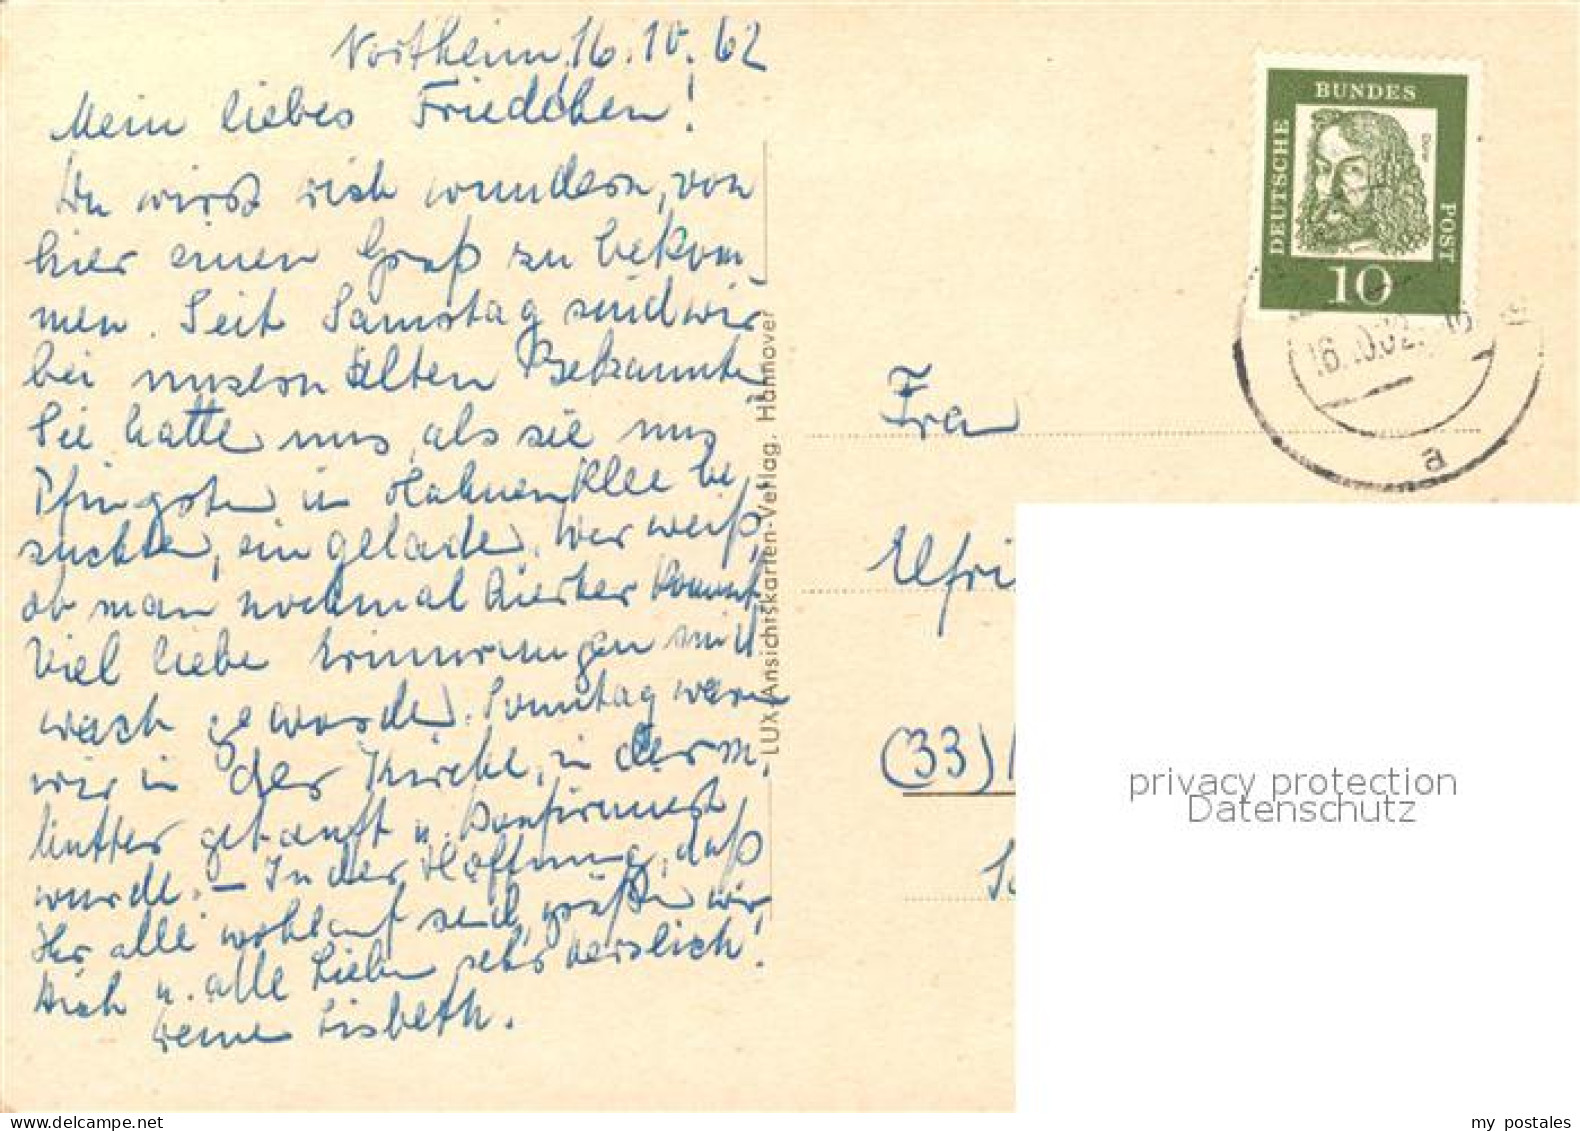 Northeim, 16.10.62
Mein liebes Friedchen!
Du wirst dich wundern, von
hier einen Gruß zu bekom-
men. Seit Samstag sind wir
bei unseren alten Bekannten
Sie hatten uns, als sie uns
Pfingsten in Hahnenklee be
suchten, eingeladen. Wer weiß,
ob man nochmal hierher kommt.
Viel liebe Erinnerungen sind
wach geworden. Sonntag waren
wir in der Kirche, in der m.
Mutter getauft u. konfirmiert
wurde. – In der Hoffnung, daß
Ihr alle wohlauf seid, grüßen wir
Dich u. alle Lieben sehr herzlich!
Deine Lisbeth.
LUX-Ansichtskarten-Verlag, Hannover
DEUTSCHE
BUNDES
POST
Dürer
10
16.10.62
a
Frau
Elfri
(33)
privacy protection
Datenschutz
my postales